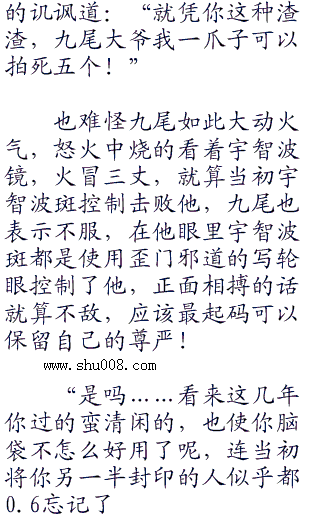 的讥讽道：“就凭你这种渣
渣，九尾大爷我一爪子可以
拍死五个！”
也难怪九尾如此大动火
气，怒火中烧的看着宇智波
镜，火冒三丈，就算当初宇
智波斑控制击败他，九尾也
表示不服，在他眼里宇智波
斑都是使用歪门邪道的写轮
眼控制了他，正面相搏的话
就算不敌，应该最起码可以
保留自己的尊严！
www.shu008.com
“是吗……看来这几年
你过的蛮清闲的，也使你脑
袋不怎么好用了呢，连当初
将你另一半封印的人似乎都
0.6忘记了